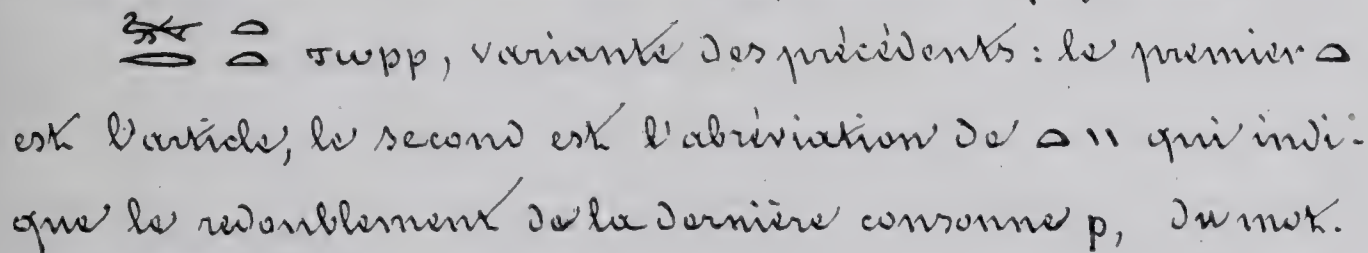 ⲧⲱⲣⲣ, variante des précédents : le premier 𓏏
est l'article, le second est l'abréviation de 𓏏 \\ qui indi-
que le redoublement de la dernière consonne ⲣ, du mot.